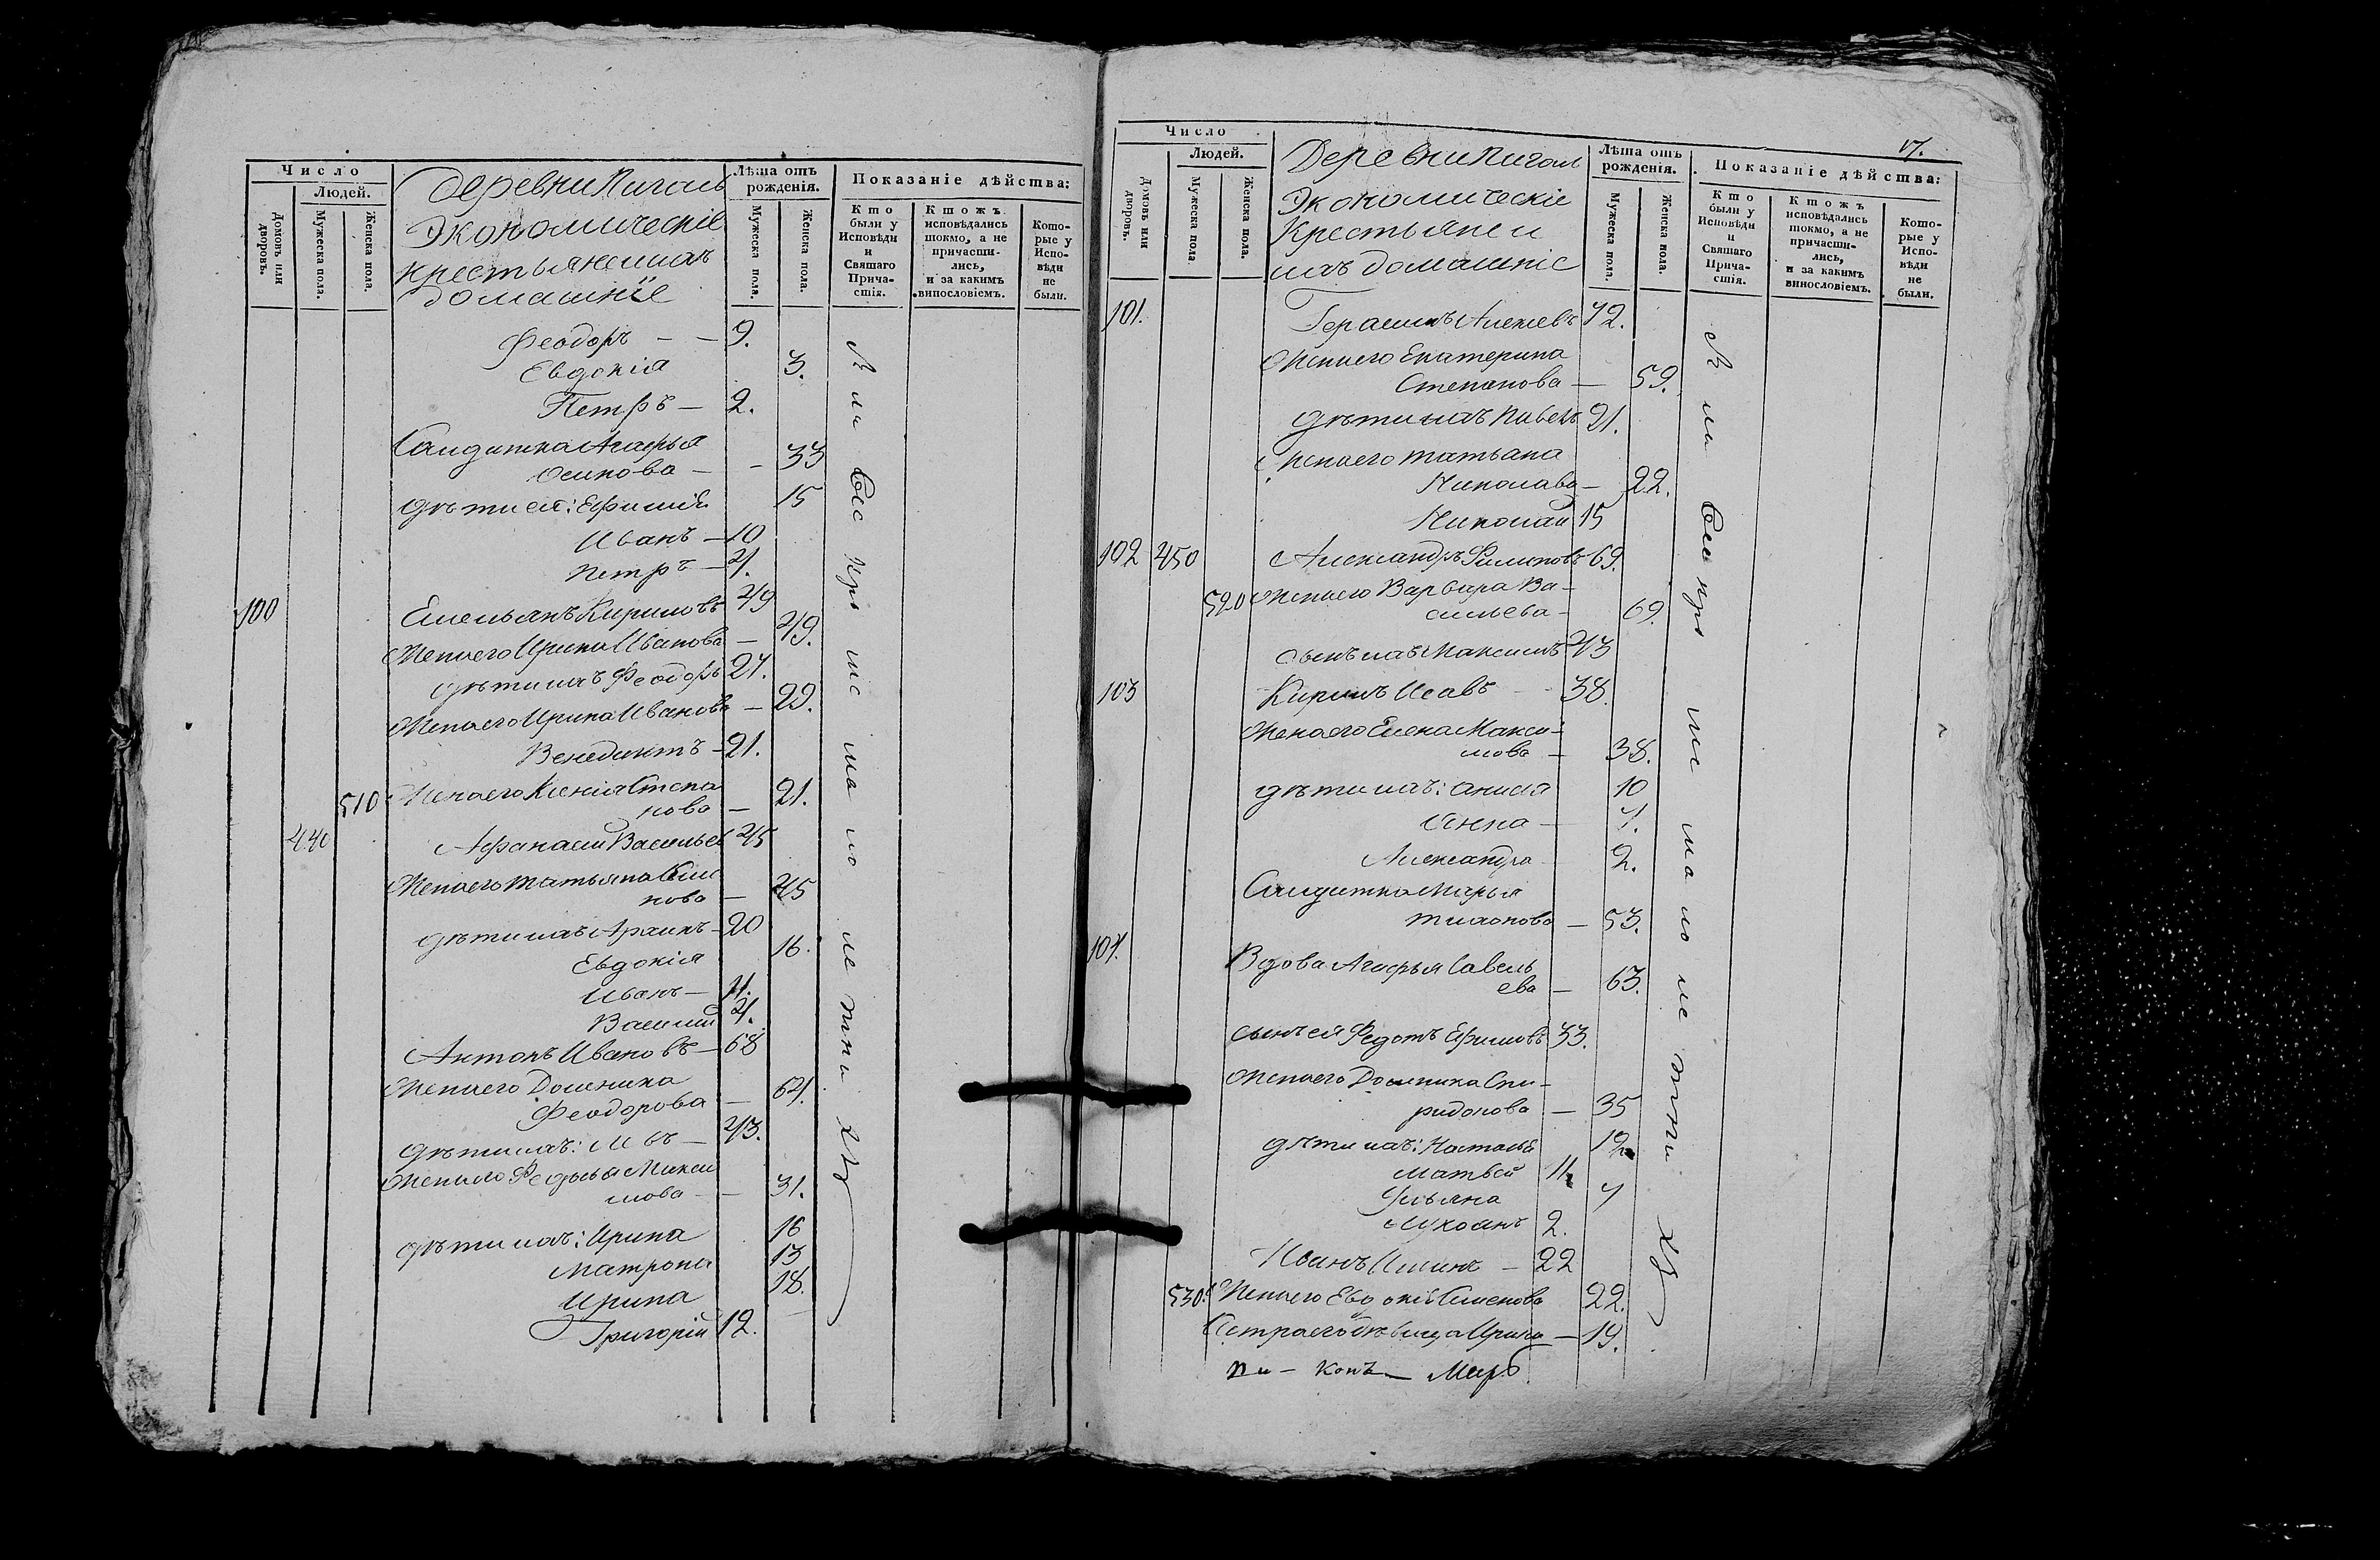 Число
Людей.
Домовъ или дворовъ.
Мужеска пола.
Женска пола.
Деревни Пигол
Экономическіе
крестьяне и ихъ
домашніе
Лѣта отъ рожденія.
Мужеска пола.
Женска пола.
Показаніе дѣйства:
Кто были у Исповѣди и Святаго Прича-стія.
Ктожъ исповѣдались токмо, а не причасти-лись, и за какимъ винословіемъ.
Кото-рые у Испо-вѣди не были.
Феодоръ — — 9.
Евдокія 3.
Петръ — 2.
Солдатка Агафья
Осипова — — 33
дѣти ея: Ефимій 15
Иванъ — 10
Петръ — 4.
100 Емельянъ Кириловъ 49
Жена его Ирина Иванова — 49.
дѣти ихъ Феодоръ 27.
Жена его Ирина Иванова — 29.
Венедиктъ — 21.
510 Жена его Ксенія Степа
нова — 21.
440 Афанасій Васильев 45
Жена его Татьяна Сем
нова — 45
дѣти ихъ 20
Евдокія 16.
Иванъ — 11.
Василій 4.
Антонъ Ивановъ — 68
Жена его Домника
Феодорова — 64.
дѣти ихъ: — 43.
Жена его Федосья Макси
мова — — 31.
дѣти ихъ: Ирина 16
Матрона 13
Ирина 18.
Григорій 12.
17.
Число
Людей.
Домовъ или дворовъ.
Мужеска пола
Женска пола.
Деревни Пигол
Экономическіе
Крестьяне и
ихъ домашніе
Лѣта отъ рожденія.
Мужеска пола.
Женска пола.
Показаніе дѣйства:
Кто были у Исповѣди и Святаго Прича-стія.
Ктожъ исповѣдались токмо, а не причасти-лись, и за какимъ винословіемъ.
Кото-рые у Испо-вѣди не были.
101. Герасимъ Алексѣевъ 72.
Жена его Екатерина
Степанова — 59.
дѣти ихъ Павелъ 21.
Жена его Татьяна
Николава — 22.
Николай 15
102 450 Александръ Филиповъ 69.
520 Жена его Варвара Ва-
сильева — 69.
сынъ ихъ Максимъ 43
103 Кирилъ Исавъ — 38.
Жена его Елена Макси-
мова — 38.
дѣти ихъ: Анисія 10
Анна — 7.
Александра 2.
Солдатка Марья
Тихонова — 53.
104. Вдова Агафья Савель
ева — 63.
сынъ ея Федотъ Ефимовъ 33.
Жена его Домника Спи-
ридонова — 35
дѣти ихъ: Наталья 12
Матвей 11
Ульяна 7
2.
Иванъ — 22
530. Жена его Евдокія Семенова 22.
Сестра его дѣвица Ирина — 19.